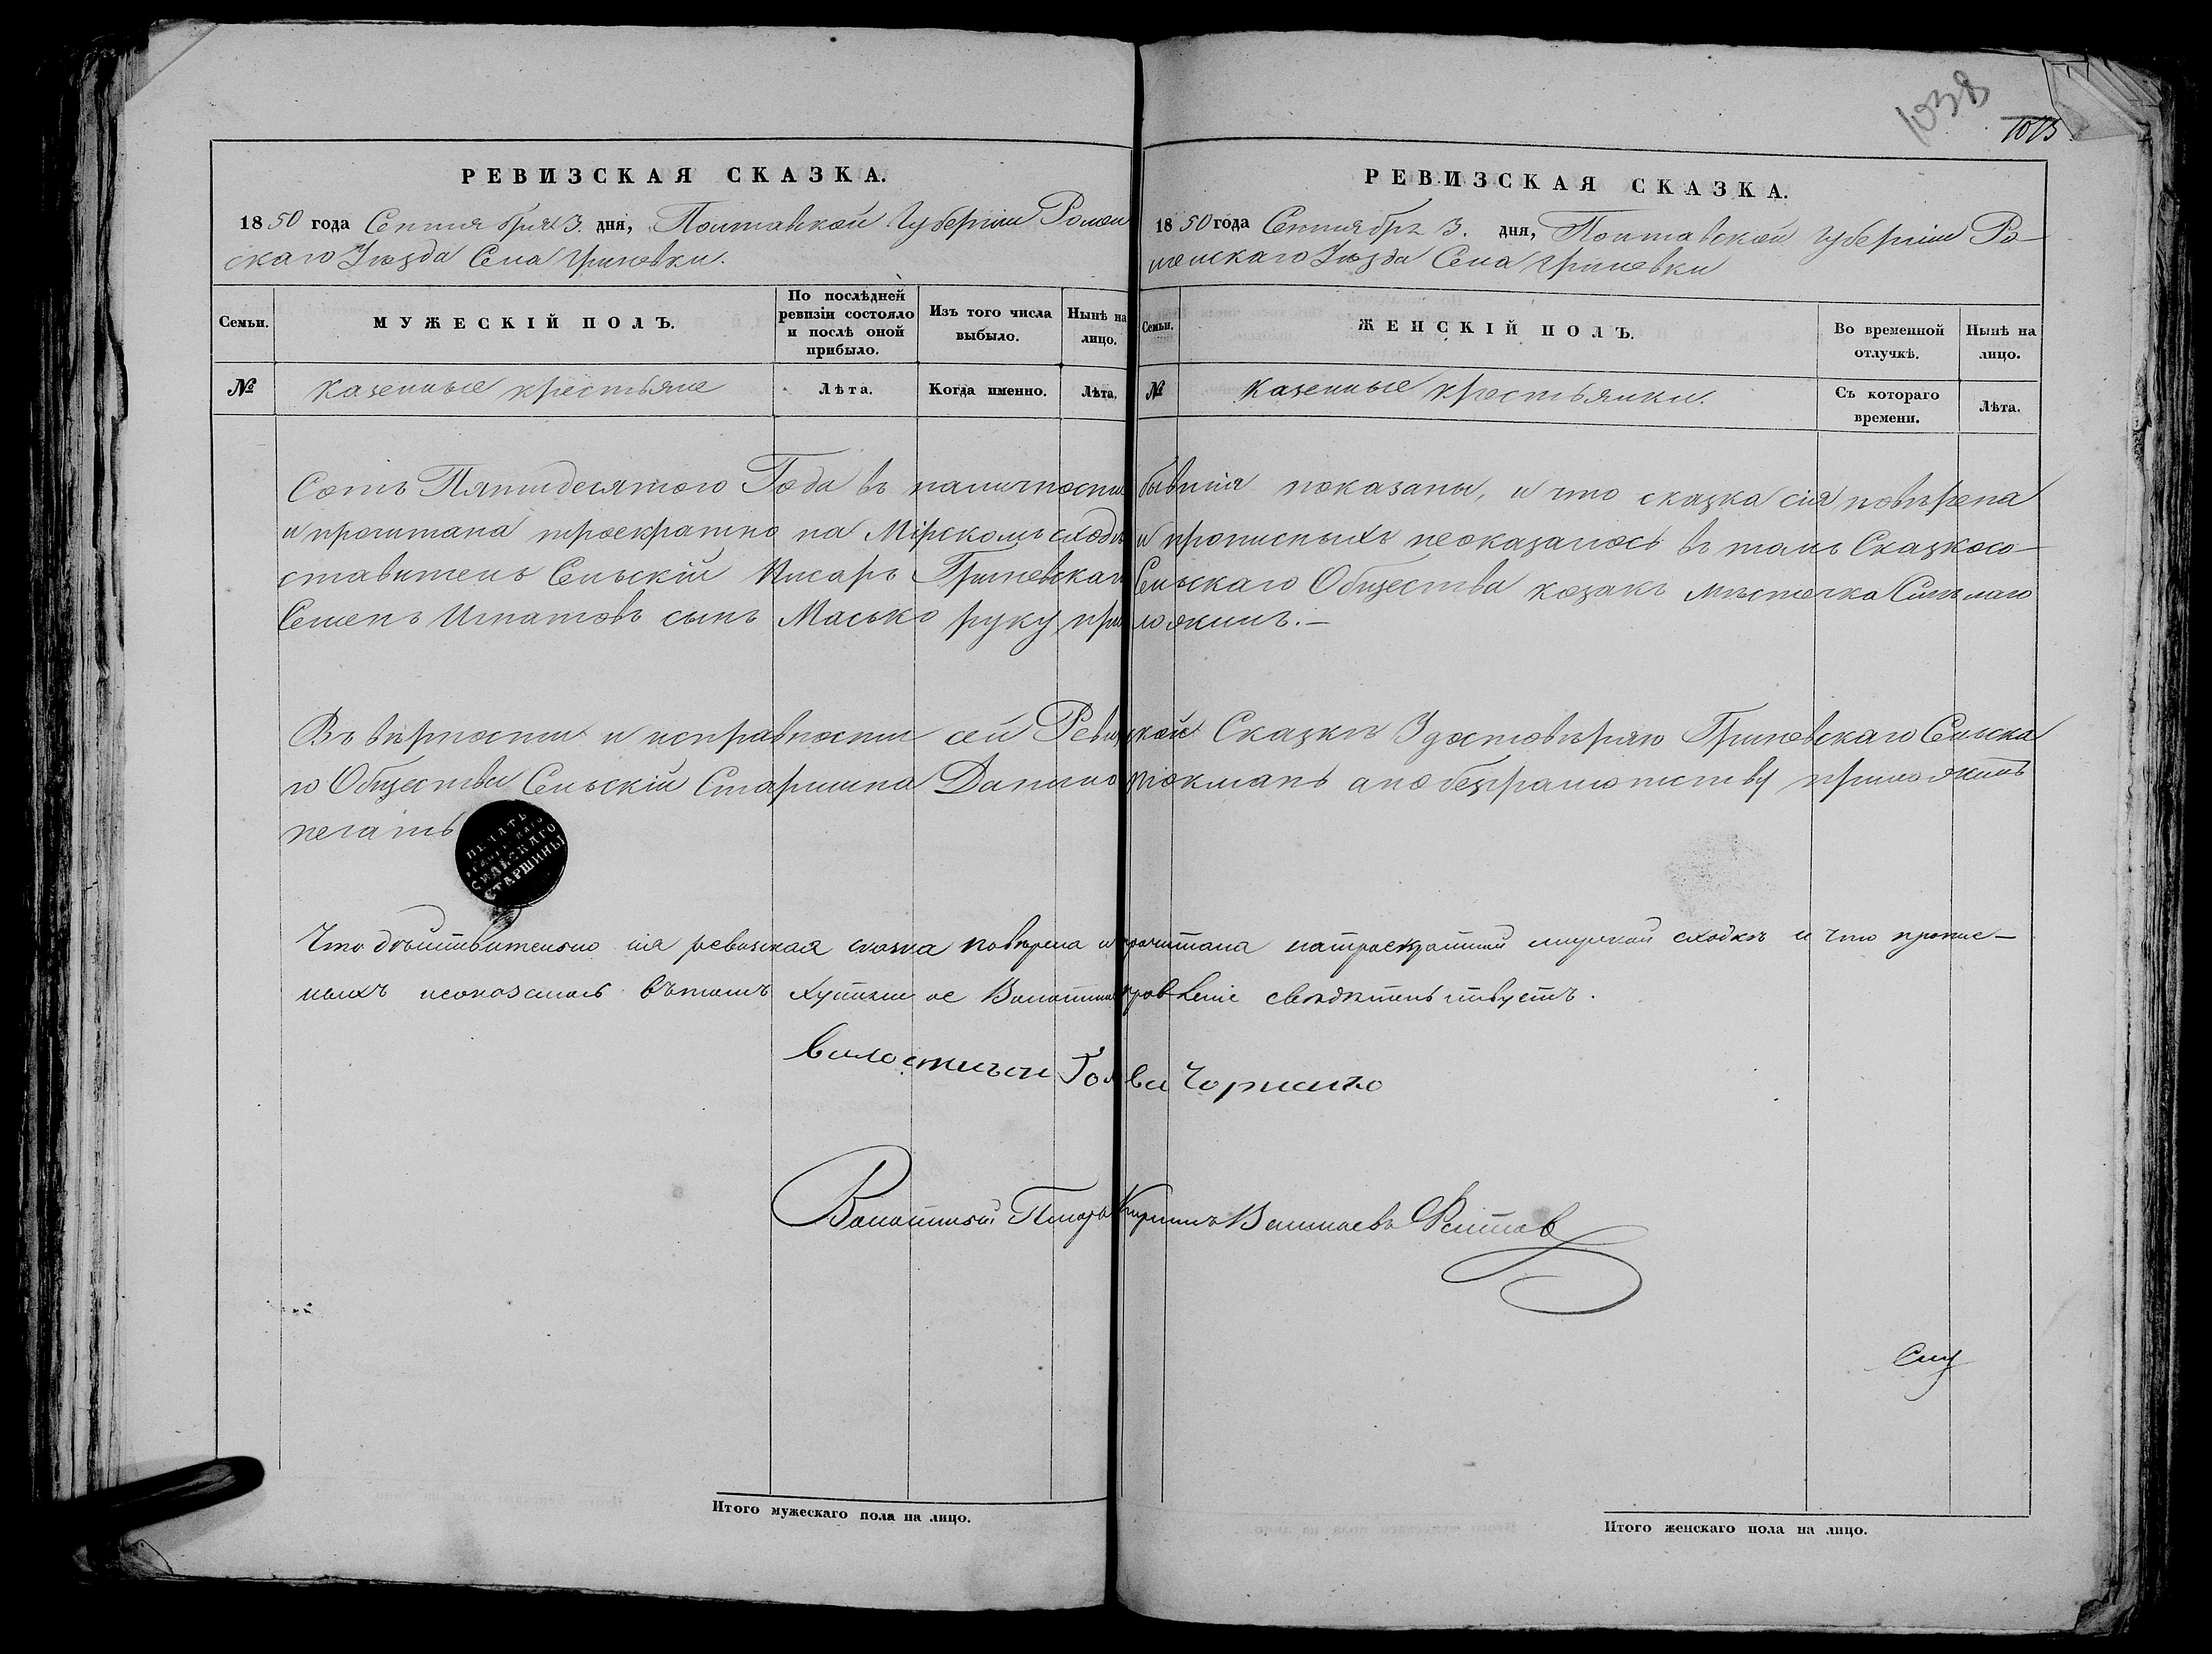 1038
1013
РЕВИЗСКАЯ СКАЗКА.
1850 года Сентября 3. дня, Полтавской Губерніи Ромен
скаго Уѣзда Села Гриневки.
Семьи.
МУЖЕСКІЙ ПОЛЪ.
По послѣдней ревизіи состояло и послѣ оной прибыло.
Изъ того числа выбыло.
Нынѣ на лицо.
№
Казенные крестьяне
Лѣта.
Когда именно.
Лѣта.
РЕВИЗСКАЯ СКАЗКА.
1850 года Сентября 3. дня, Полтавской Губерніи Ро-
менскаго Уѣзда Села Гриневки
Семьи.
ЖЕНСКІЙ ПОЛЪ.
Во временной отлучкѣ.
Нынѣ на лицо.
№
Казенные крестьянки.
Съ котораго времени.
Лѣта.
Сотъ Пятидесятого Года въ наличности бывшія показаны, и что сказка сія повѣрена
и прочитана троекратно на Мірскомъ сходѣ и прописныхъ неоказалось въ томъ Сказкосо-
ставитель Сельскій Писарь Гриневскаго Сельскаго Общества козакъ мѣстечка Смѣлаго
Семенъ Игнатовъ сынъ Масько руку приложилъ.-
Въ вѣрности и исправности сей Ревизкой Сказкѣ Удостовѣряю Гриневскаго Сельска
го Общества Сельскій Старшина Данило Токмань апобезграмотству приложилъ
печать
ПЕЧАТЬ
СЕЛЬСКАГО
СТАРШИНЫ
Что дѣйствительно сія ревизская сказка повѣрена и прочитана натроекратной мирской сходкѣ и что пропис-
ныхъ неоказалось вътомъ Волостное правленіе свидѣтельствуетъ.
волостной Голова
Волостной Писарь
Итого мужескаго пола на лицо.
Итого женскаго пола на лицо.